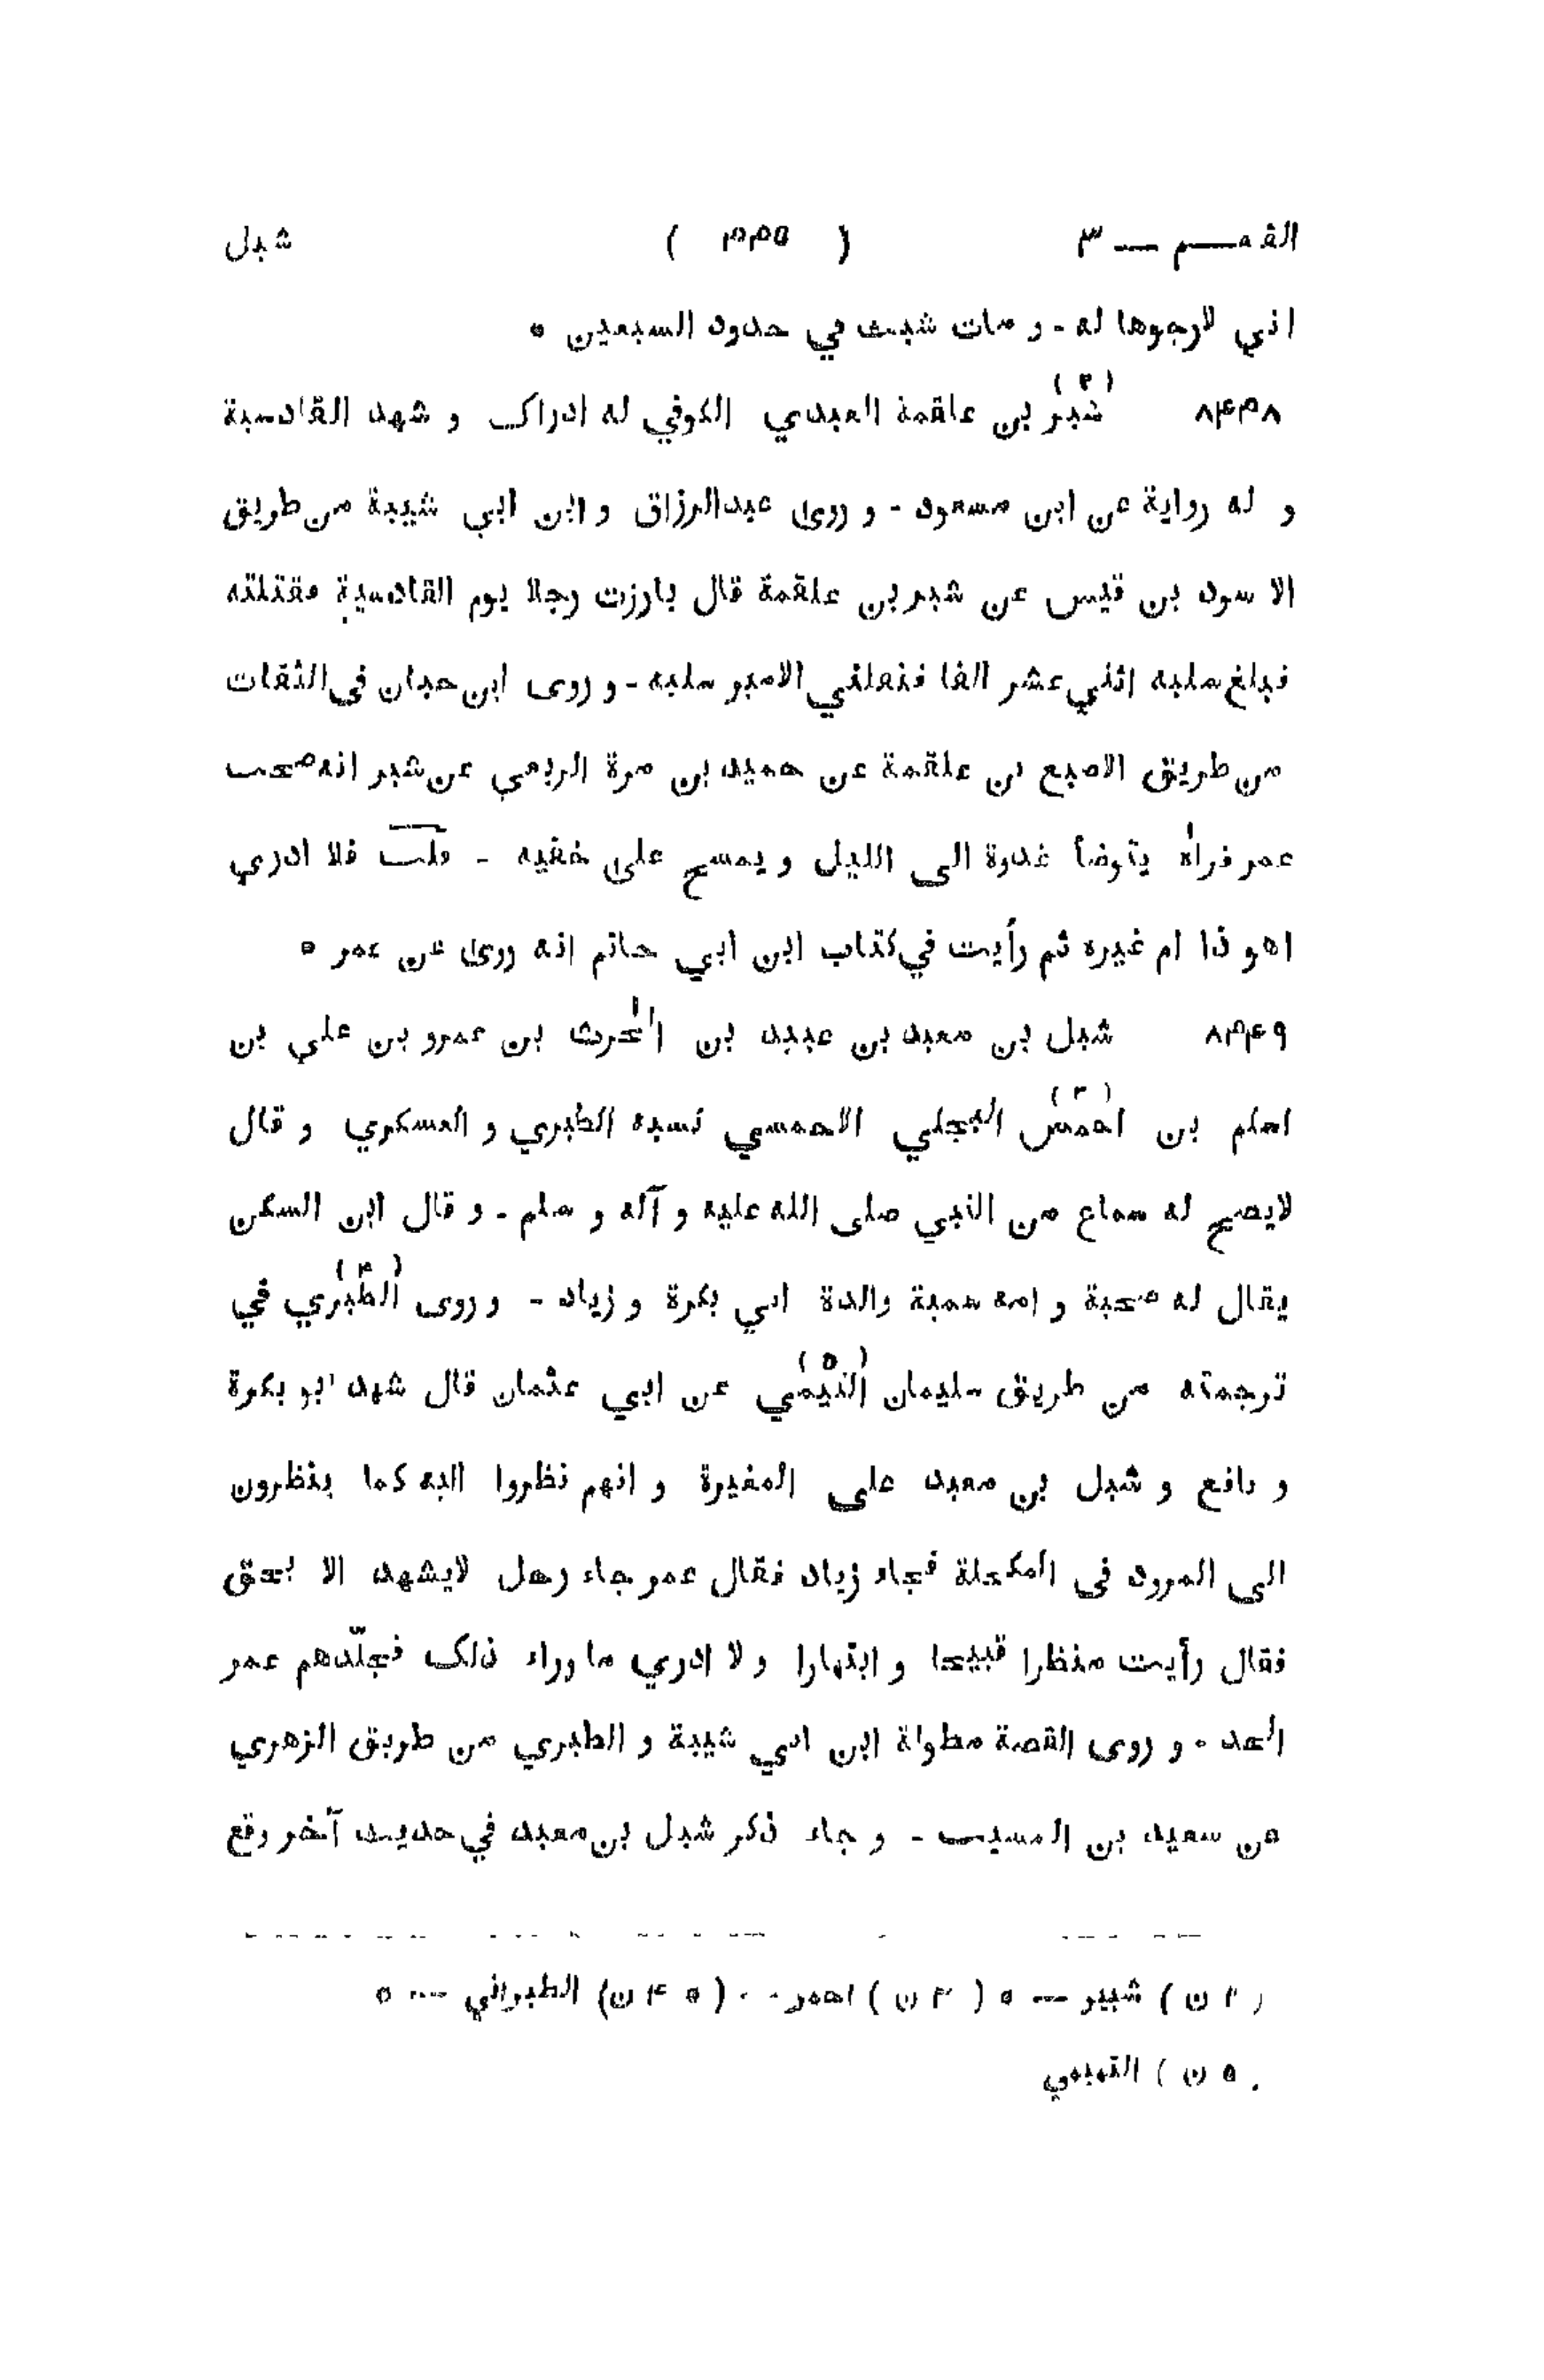 القســـم — ٣ ( ٤٤٥ ) شبل
اني لارجوها له - و مات شبث في حدود السبعين ٥
٨٤٤٨ شبر(٢) بن علقمة العبدي الكوفي له ادراك و شهد القادسية
و له رواية عن ابن مسعود - و روى عبدالرزاق و ابن ابي شيبة من طريق
الا سود بن قيس عن شبر بن علقمة قال بارزت رجلا يوم القادسية فقتلته
فبلغ سلبه اثني عشر الفا فنفلني الامير سلبه - و روى ابن حبان في الثقات
من طريق الاصبع بن علقمة عن حميد بن مرة الربعي عن شبر انه صحب
عمر فراٰه يتوضأ غدوة الى الليل و يمسح على خفيه - قلت فلا ادري
اهو ذا ام غيره ثم رأيت في كتاب ابن ابي حاتم انه روى عن عمر ٥
٨٤٤٩ شبل بن معبد بن عبيد بن الحٰرث بن عمرو بن علي بن
اسلم بن احمس(٣) البجلي الاحمسي نسبه الطبري و العسكري و قال
لايصح له سماع من النبي صلى الله عليه و آله و سلم - و قال ابن السكن
يقال له صحبة و امه سمية والدة ابي بكرة و زياد - و روى الطبري(٤) في
ترجمته من طريق سليمان التيمي(٥) عن ابي عثمان قال شهد ابو بكرة
و نافع و شبل بن معبد على المغيرة و انهم نظروا اليه كما ينظرون
الى المرود في المكحلة فجاء زياد فقال عمر جاء رجل لايشهد الا بحق
فقال رأيت منظرا قبيحا و ابتهارا و لا ادري ما وراء ذلك فجلّدهم عمر
الحد ٥ و روى القصة مطولة ابن ابي شيبة و الطبري من طريق الزهري
عن سعيد بن المسيب - و جاء ذكر شبل بن معبد في حديث آخر وقع
( ٢ ن ) شبير — ٥ ( ٣ ن ) احمر - ٥ ( ٤ ن) الطبراني — ٥
( ٥ ن ) التميمي